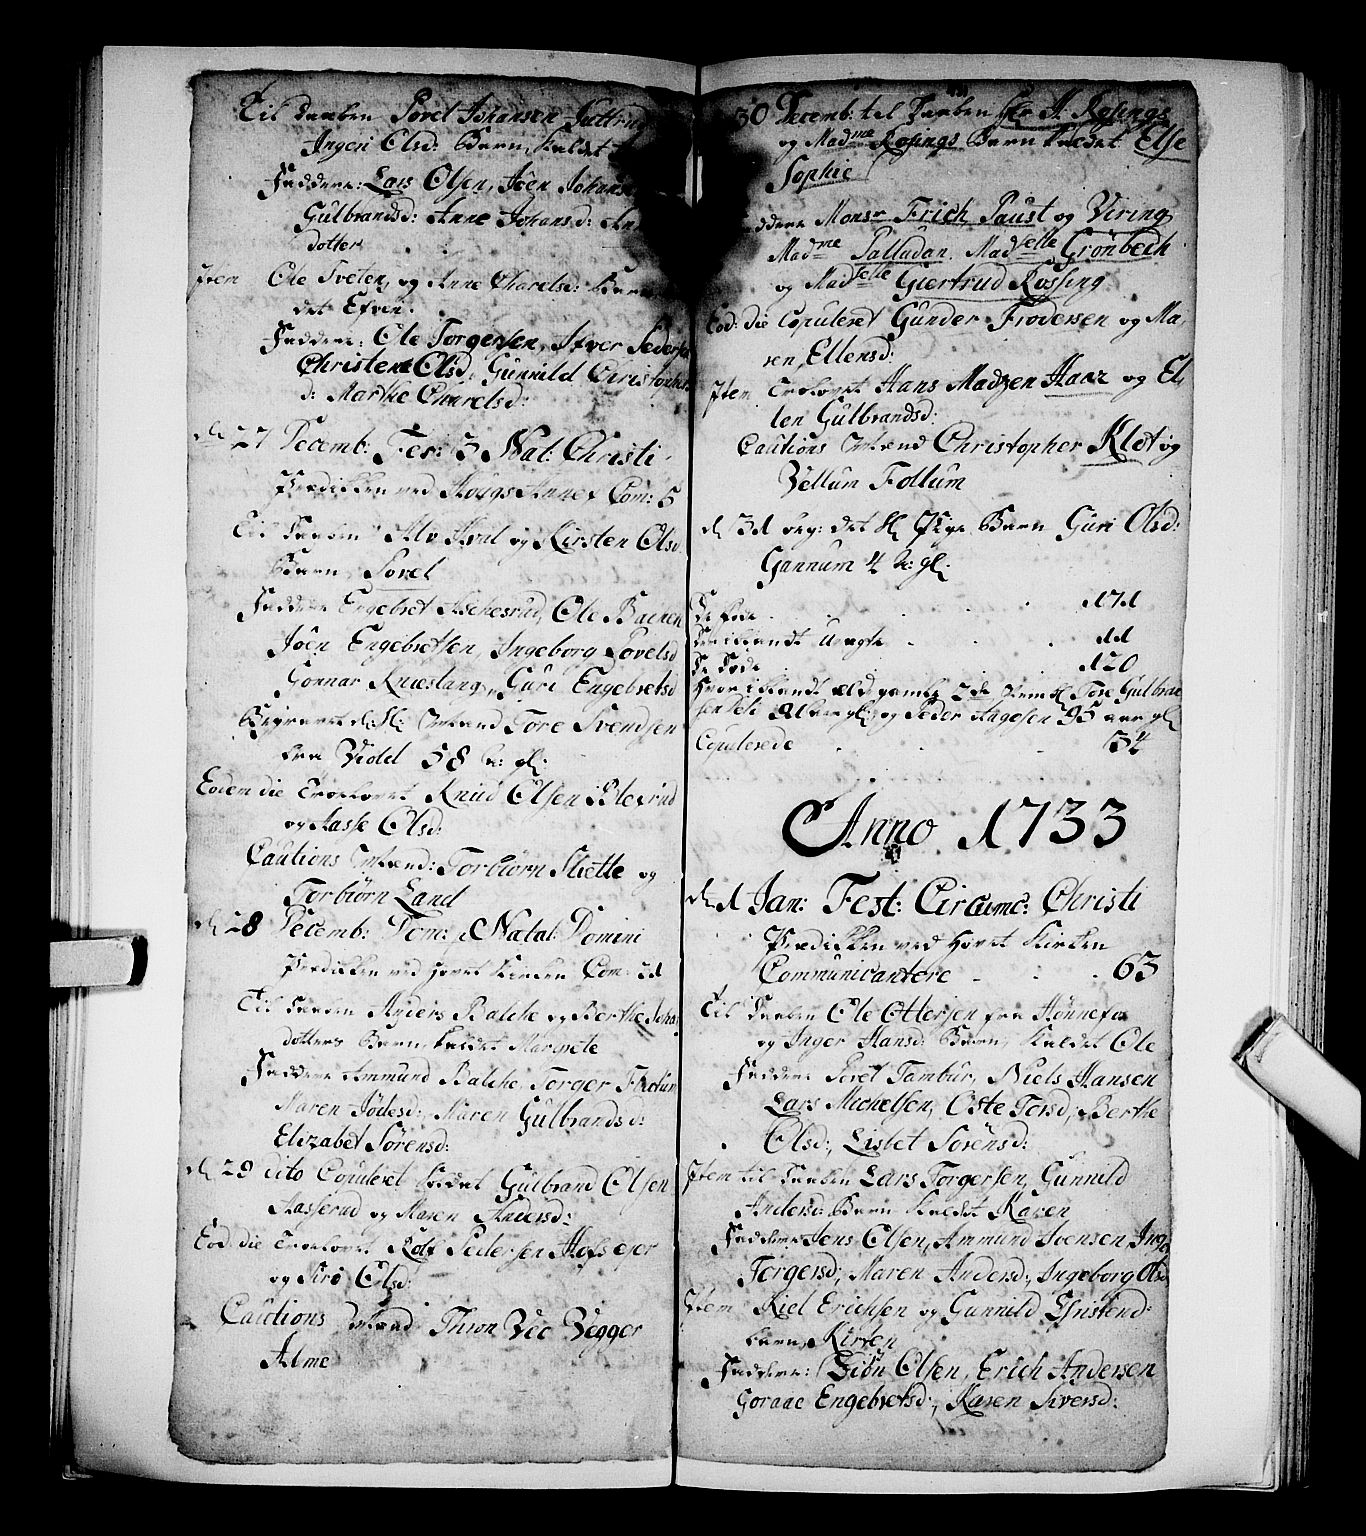 Til Daaben Povel Johansen
Ingeri Olsd: Barn, kaldet
Faddere: Lars Olsen, Joen Johans
Gulbrandsd: Anne Johansd: An
dotter
Item Ole Sveten, og Anne Charelsd: Barn
det Efven.
Faddere: Ole Torgersen, Siver Peders
Christene Olsd: Gunnild Christopher
d: Marthe Charelsd:
d. 27 Decemb: Fer: 3 Nat: Christi
Prædikken ved Hougs Annex Com: 5
Til Daaben Alv Hval og Kirsten Olsd:
Barn, Povel
Faddere Engebret Aschesrud, Ole Backen
Joen Engebretsen, Ingeborg Povelsd
Gonnar Knæstang, Guri Engebretsd
Begravet d: Sl: Mand Tore Svendsen
fra Viold 58 a: gl:
Eodem die Trolovet Knud Olsen Blexrud
og Aasse Olsd:
Cautions Mænd: Torbiørn Sliette og
Torbiørn Land
d. 28 Decemb: Dom: Natal: Domini
Prædikken ved Hovet Kirken Com: 21
Til Daaben Anders Balche og Berthe Joha
dotters Barn, kaldet Margrete
Faddere Ammund Balche, Torger
Maren Jödesd:, Maren Gulbrandsd:
Elizabet Sörensd:
d. 29 dito Copuleret Gulbrand Olsen
Aasserud og Maren Andersd:
Eod: die Trolovet Rolf Pedersen Hofseyer
og Siri Olsd:
Cautions Mænd Thron Vee Vegger
Alme
30 Decemb: til Daaben Hr H. Rosings
og Madme Rosings Barn kaldet Else
Sophie
Faddere Monsr Frich, Paust og Viring
Madme Palludan, Madselle Grönbech
og Madselle Giertrud Rossing
Eod: die Copuleret Gunder Frodersen og Ma,
ren, Ellensd:
Item Trolovet Hans Madzen Haar og El,
len Gulbrandsd:
Cautions Mænd Christopher Klot og
Vellum Follum
d. 31 beg: det Sl Pige Barn Guri Olsd:
Gannum 4 a: gl:
De Föde . . . 171
Deriblandt Uægte . . 11
De Döde . . . 120
Hvor iblandt æld gamle Tore Gulbran
sen 91 aar gl: og Peder Aagesen 95 aar gl
Copulerede . . . 34
Anno 1733
d. 1 Jan: Fest: Circumc: Christi
Prædikken ved Hovet Kirken
Communicantere - . . 63
Til Daaben Ole Ottersen fra Hönnefos
og Inger Hansd: Barn, kaldet Ole
Faddere Povel Tambur, Niels Hansen
Lars Michelsen, Oste Torsd:, Berthe
Olsd:, Lisbet Sörensd:
Item til Daaben Lars Torgersen, Gunnild
Andersd: Barn kaldet Karen
Faddere Jens Olsen, Ammund Svensen, Inge
Torgersd:, Maren Andersd:, Ingeborg Olsd
Item Kiel Erichsen og Gunnild Ysstend:
barn, Kirsten
Faddere: Siön Olsen, Erich Andersen
Goraae Engebretsd:, Karen Siversd: